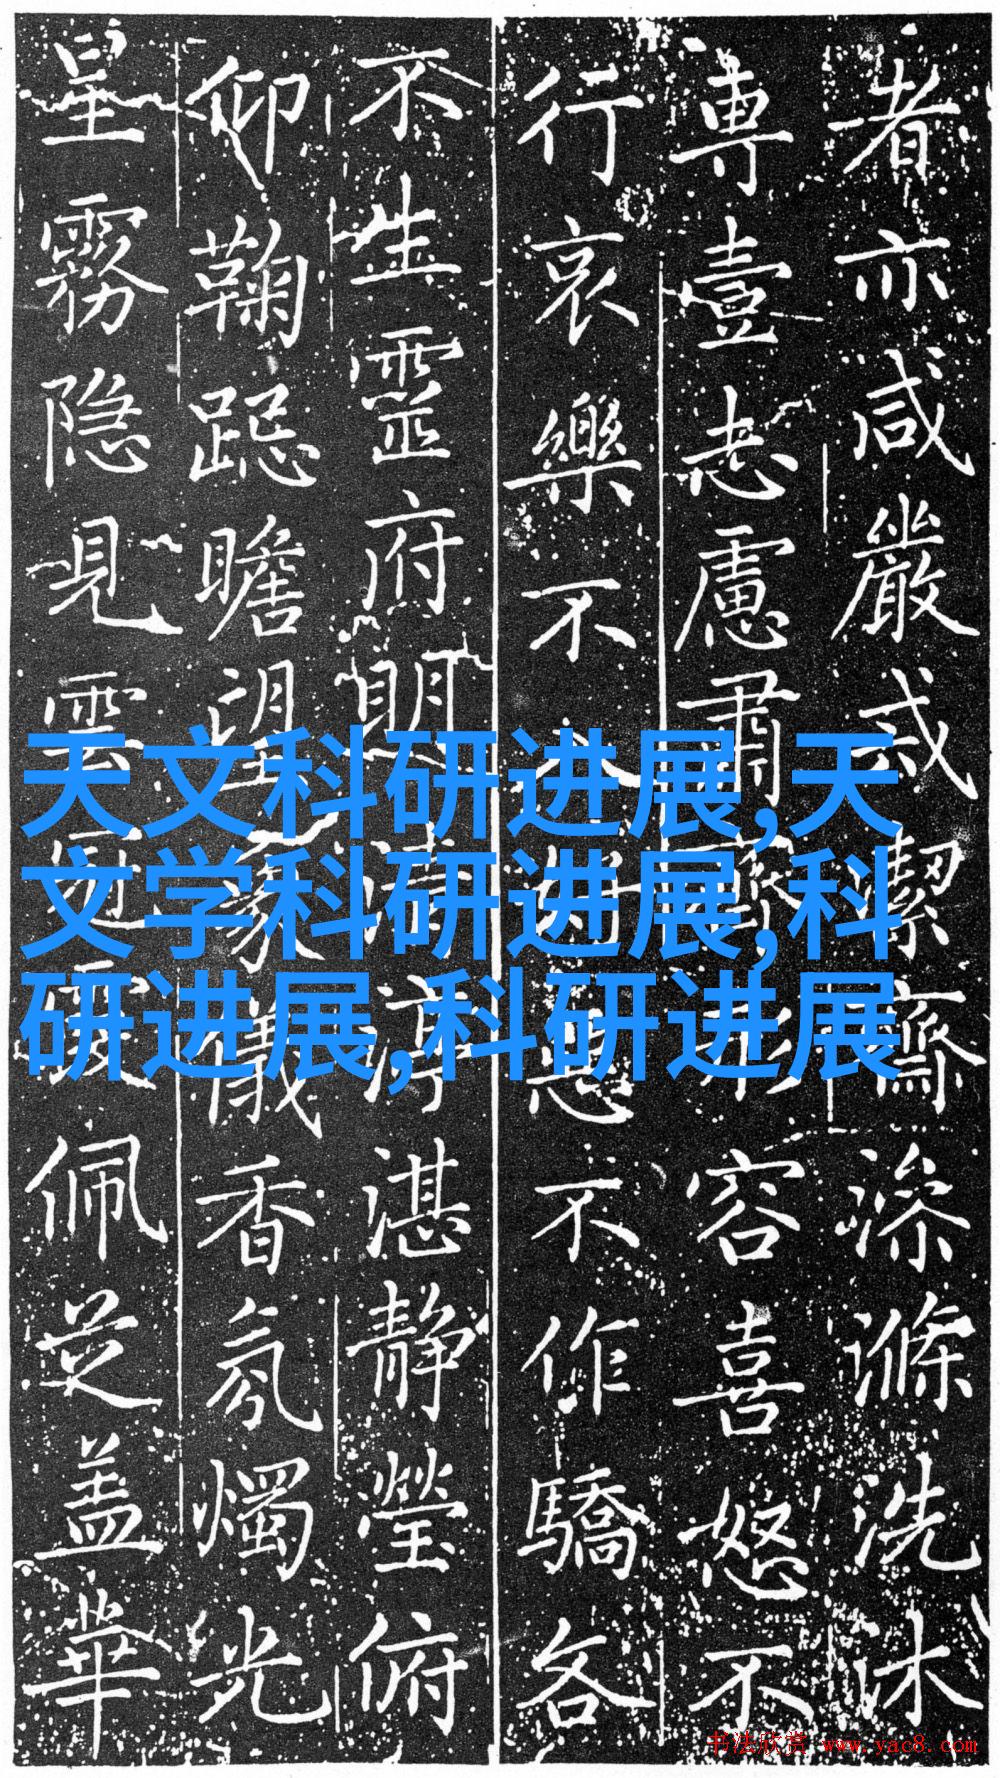 者亦咸嚴戒潔齋澡滌洗沐
專壹志慮肅形容喜怒不
行哀樂不不作驕各
不生靈府明清渟湛靜瑩俯
仰鞠跽瞻望象儀香氛燭光
星霧隐見雲霞佩芝盖華
天文科研进展,天
文学科研进展,科
研进展,科研进展
书法欣赏 www.yac8.com